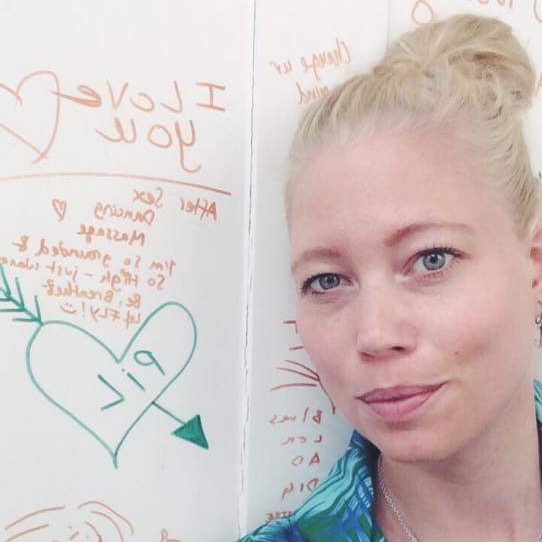 I Love
you
After Sex
Dancing
Massage
I'm so grounded &
So High - just wanna
Be! Breathe &
Fly!
Change ur
mind
Blues
Len
AD
Dig